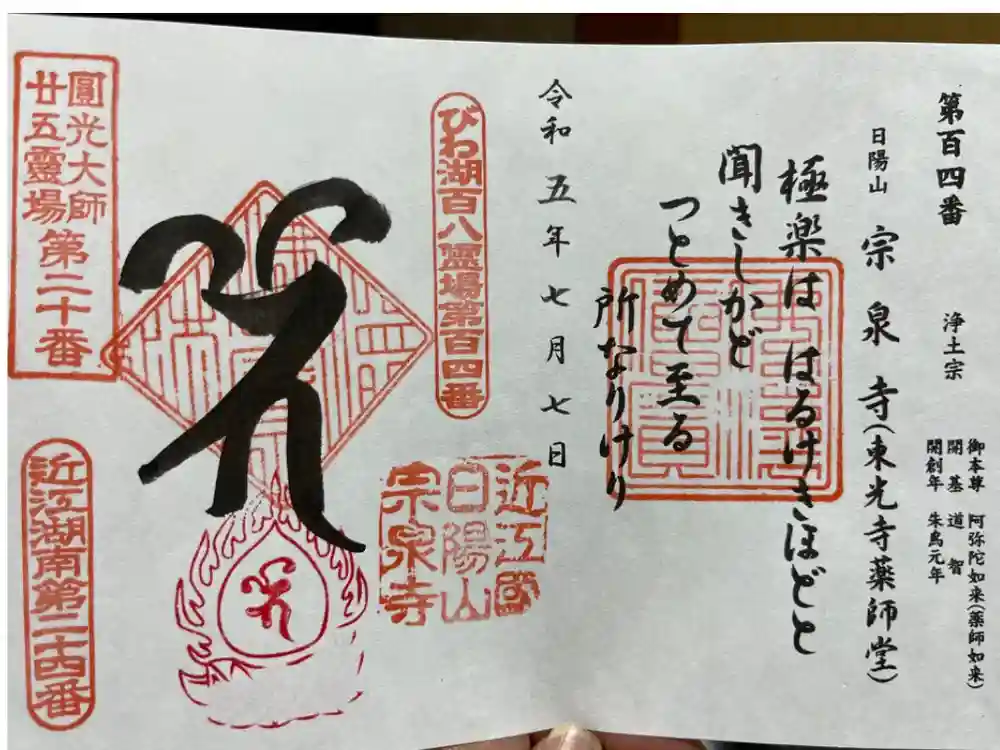 第百四番 浄土宗
御本尊 阿弥陀如来(薬師如来)
開基 道智
開創年 朱鳥元年
日陽山 宗泉寺(東光寺薬師堂)
極楽は はるけきほどと
聞きしかど
つとめて至る
所なりけり
令和五年七月七日
びわ湖百八霊場第百四番
近江國
日陽山
宗泉寺
圓光大師
廿五霊場第二十番
近江湖南第二十四番